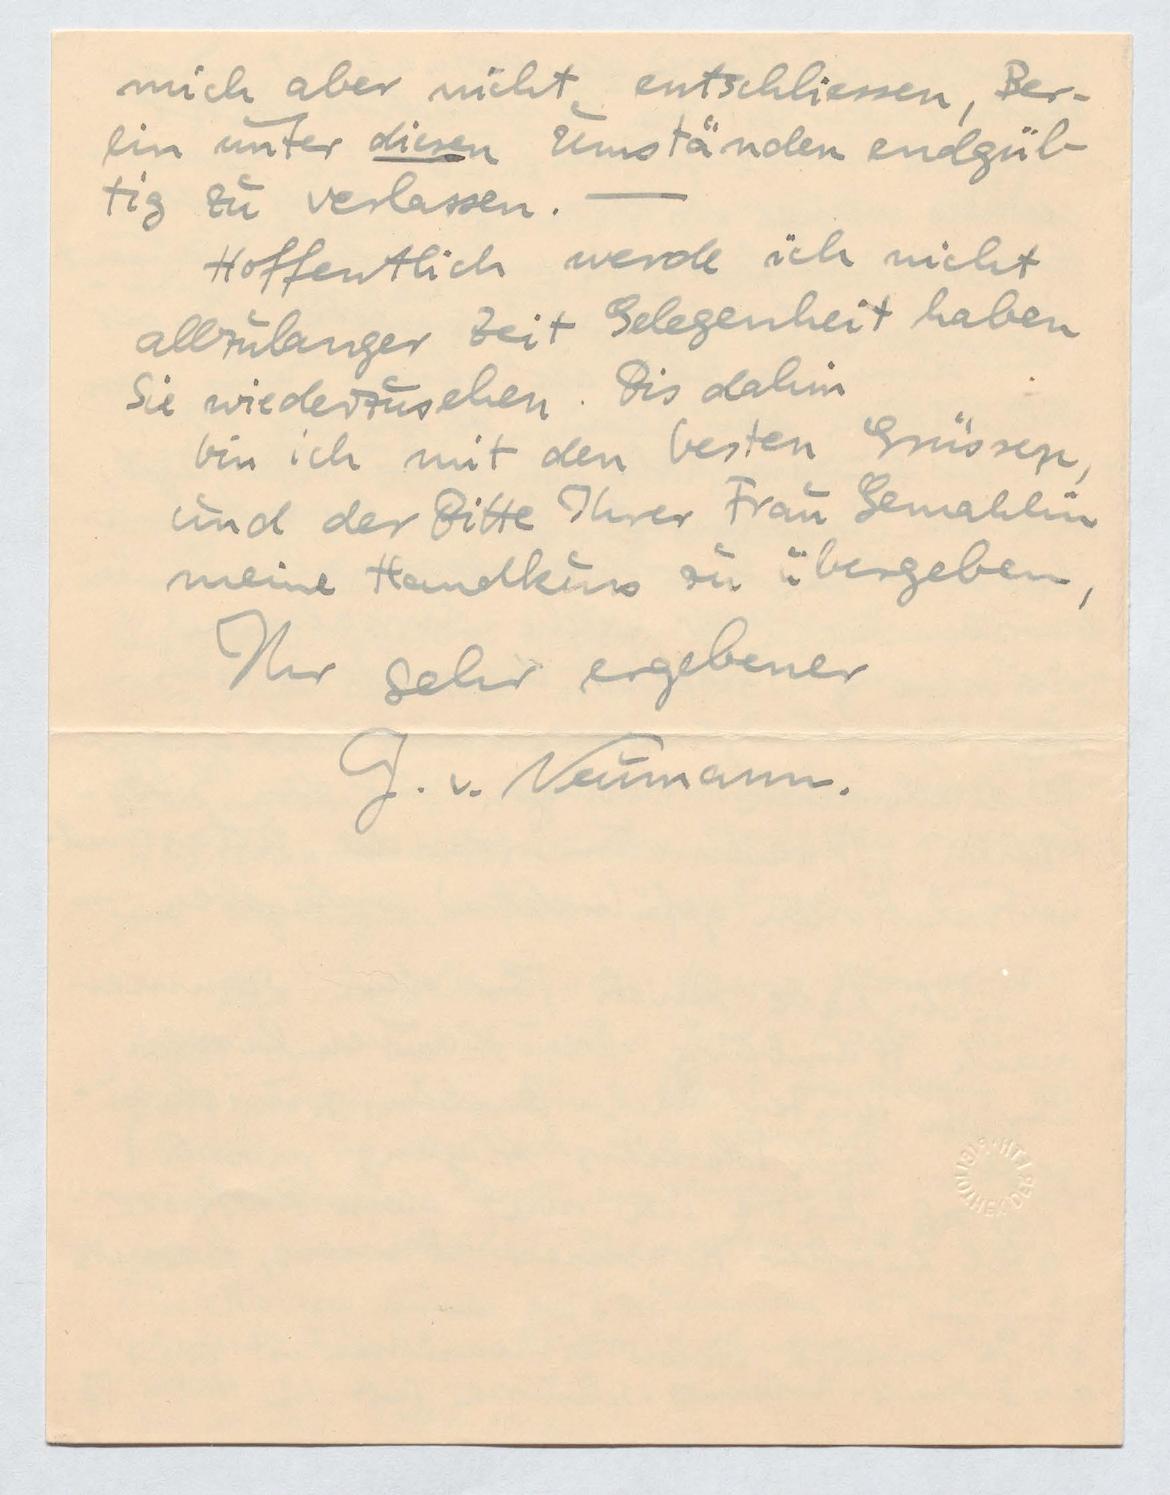 mich aber nicht entschliessen, Ber-
lin unter diesen Umständen endgül-
tig zu verlassen. —
Hoffentlich werde ich nicht
allzulanger Zeit Gelegenheit haben
Sie wiederzusehen. Bis dahin
bin ich mit den besten Grüssen,
und der Bitte Ihrer Frau Gemahlin
meine Handkuss zu übergeben,
Ihr sehr ergebener
J. v. Neumann.
BIBLIOTHEK DER ETH